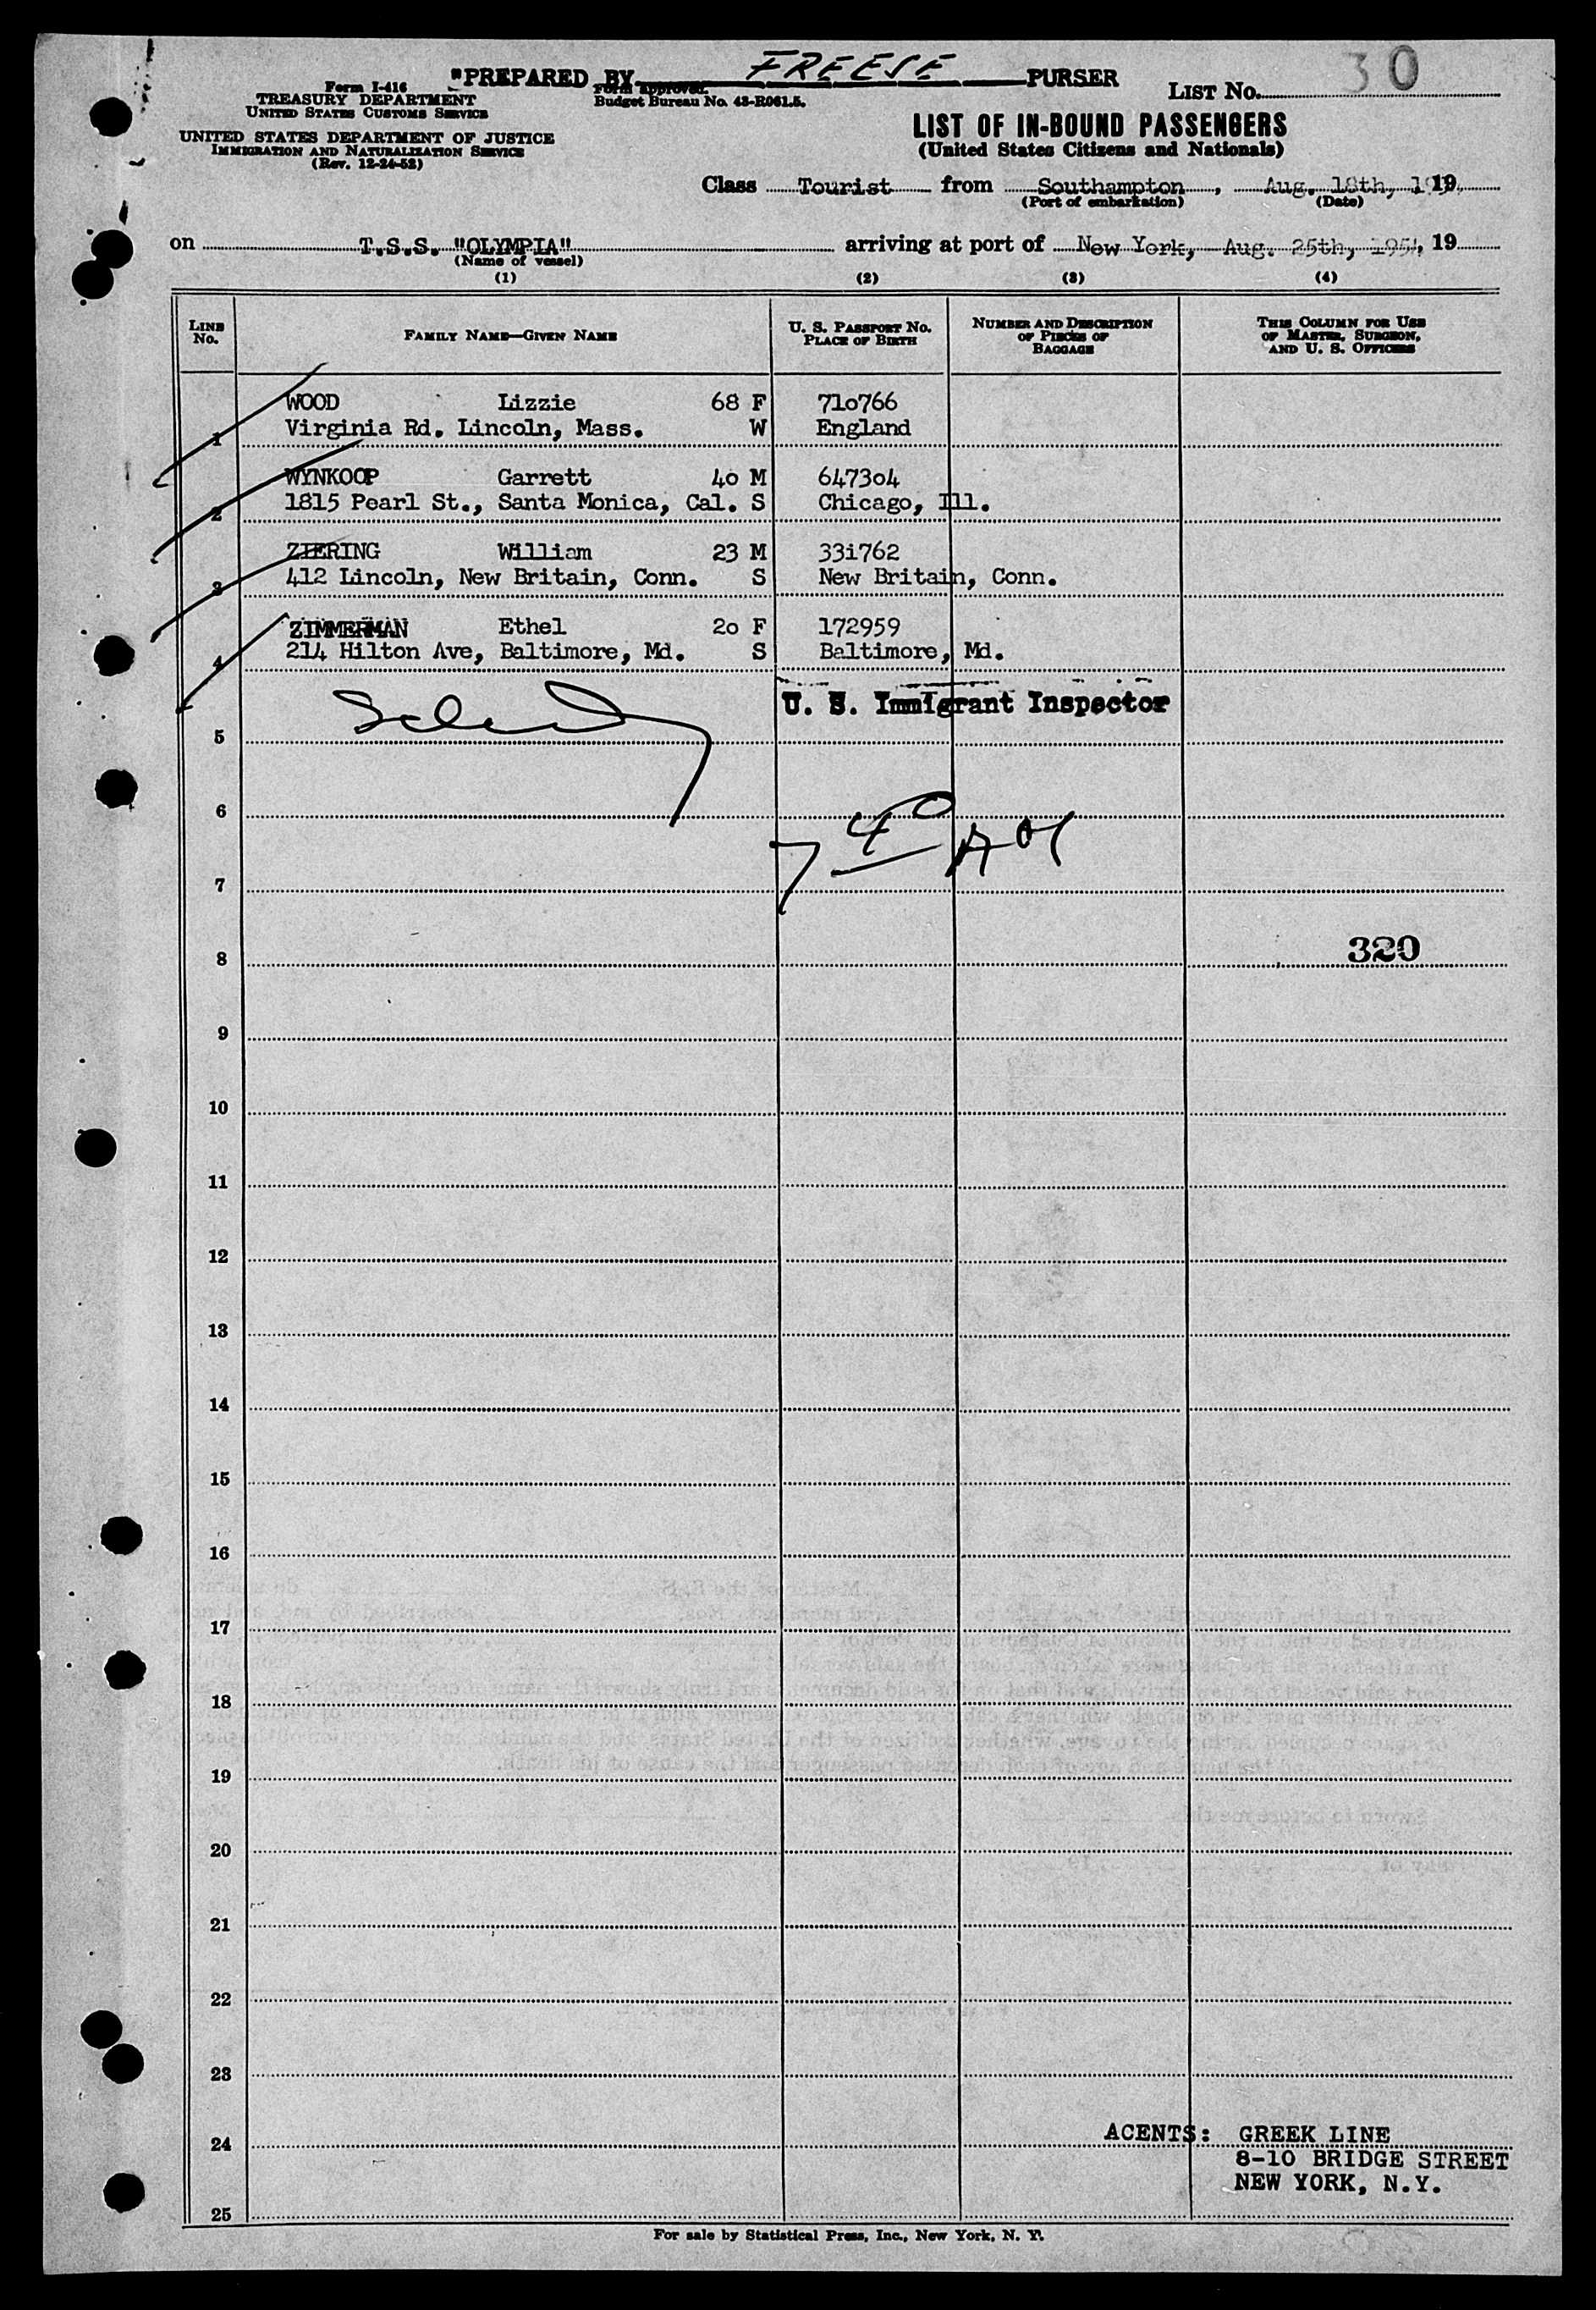 "PREPARED BY FREESE PURSER
Form I-416
TREASURY DEPARTMENT
UNITED STATES CUSTOMS SERVICE
UNITED STATES DEPARTMENT OF JUSTICE
IMMIGRATION AND NATURALIZATION SERVICE
(Rev. 12-24-52)
Form approved.
Budget Bureau No. 43-R061.5.
LIST NO. 30
LIST OF IN-BOUND PASSENGERS
(United States Citizens and Nationals)
Class Tourist from Southampton, Aug. 18th, 19
(Port of embarkation) (Date)
on T.S.S. "OLYMPIA" arriving at port of New York, Aug. 25th, 1954, 19
(Name of vessel)
(1) (2) (3) (4)
LINE NO.
FAMILY NAME—GIVEN NAME
U. S. PASSPORT NO.
PLACE OF BIRTH
NUMBER AND DESCRIPTION
OF PIECES OF
BAGGAGE
THIS COLUMN FOR USE
OF MASTER, SURGEON,
AND U. S. OFFICERS
WOOD Lizzie 68 F 710766
1 Virginia Rd. Lincoln, Mass. W England
WYNKOOP Garrett 40 M 647304
2 1815 Pearl St., Santa Monica, Cal. S Chicago, Ill.
ZIERING William 23 M 331762
3 412 Lincoln, New Britain, Conn. S New Britain, Conn.
ZIMMERMAN Ethel 20 F 172959
4 214 Hilton Ave, Baltimore, Md. S Baltimore, Md.
U. S. Immigrant Inspector
5
6
7 40
7
320
8
9
10
11
12
13
14
15
16
17
18
19
20
21
22
23
ACENTS: GREEK LINE
24
8-10 BRIDGE STREET
NEW YORK, N.Y.
25
For sale by Statistical Press, Inc., New York, N. Y.